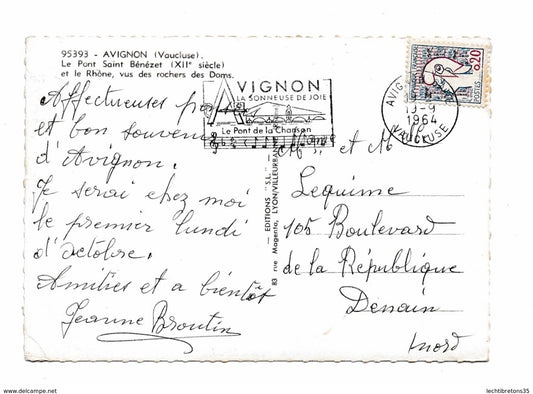 95393 - AVIGNON (Vaucluse).
Le Pont Saint Bénézet (XIIe siècle)
et le Rhône, vus des rochers des Doms.
AVIGNON
LA SONNEUSE DE JOIE
Le Pont de la Chanson
AVIGNON
19-9
1964
VAUCLUSE
0,20
POSTES
Affectueuses
et bon souvenir
d'Avignon.
Je serai chez moi
le premier lundi
d'octobre.
Amitiés et a bientôt
Jeanne Broutin
EDITIONS "S.L."
83 rue Magenta, LYON/VILLEURBANNE
Mme et M
Lequime
105 Boulevard
de la République
Denain
Nord
www.delcampe.net
lechtibretons35